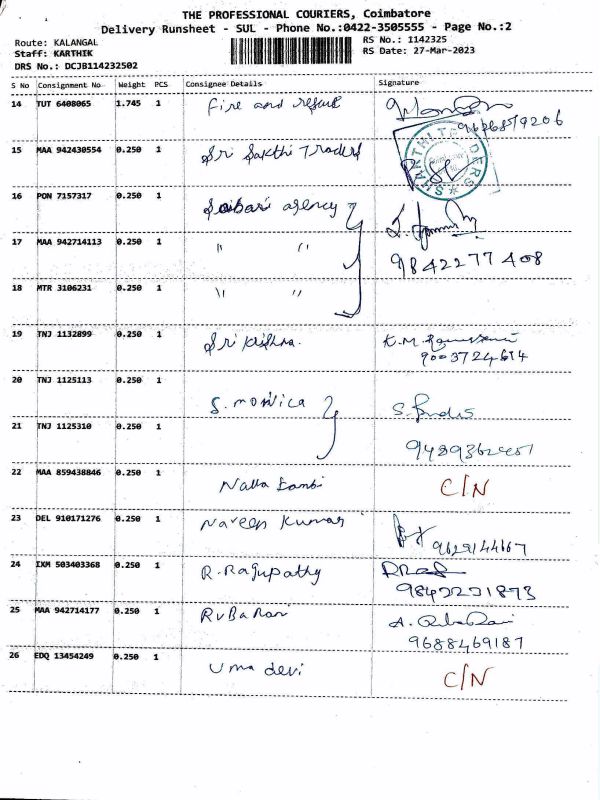 THE PROFESSIONAL COURIERS, Coimbatore
Delivery Runsheet - SUL - Phone No.:0422-3505555 - Page No.:2
Route: KALANGAL RS No.: 1142325
Staff: KARTHIK RS Date: 27-Mar-2023
DRS No.: DCJB114232502
S No Consignment No Weight PCS Consignee Details Signature
14 TUT 6408065 1.745 1 Fire and
15 MAA 942430554 0.250 1 Sri Sakthi Traders
16 PON 7157317 0.250 1 agency
17 MAA 942714113 0.250 1 " " 9842277408
18 MTR 3106231 0.250 1 " "
19 TNJ 1132899 0.250 1 Sri Krishna. K.M.
9003724614
20 TNJ 1125113 0.250 1 S. monica S.
21 TNJ 1125310 0.250 1
22 MAA 859438846 0.250 1 Nalla C/N
23 DEL 910171276 0.250 1 Naveen Kumar 9629144667
24 IXM 503403368 0.250 1 R. Ragupathy
25 MAA 942714177 0.250 1 A.
9688469187
26 EDQ 13454249 0.250 1 Uma devi C/N